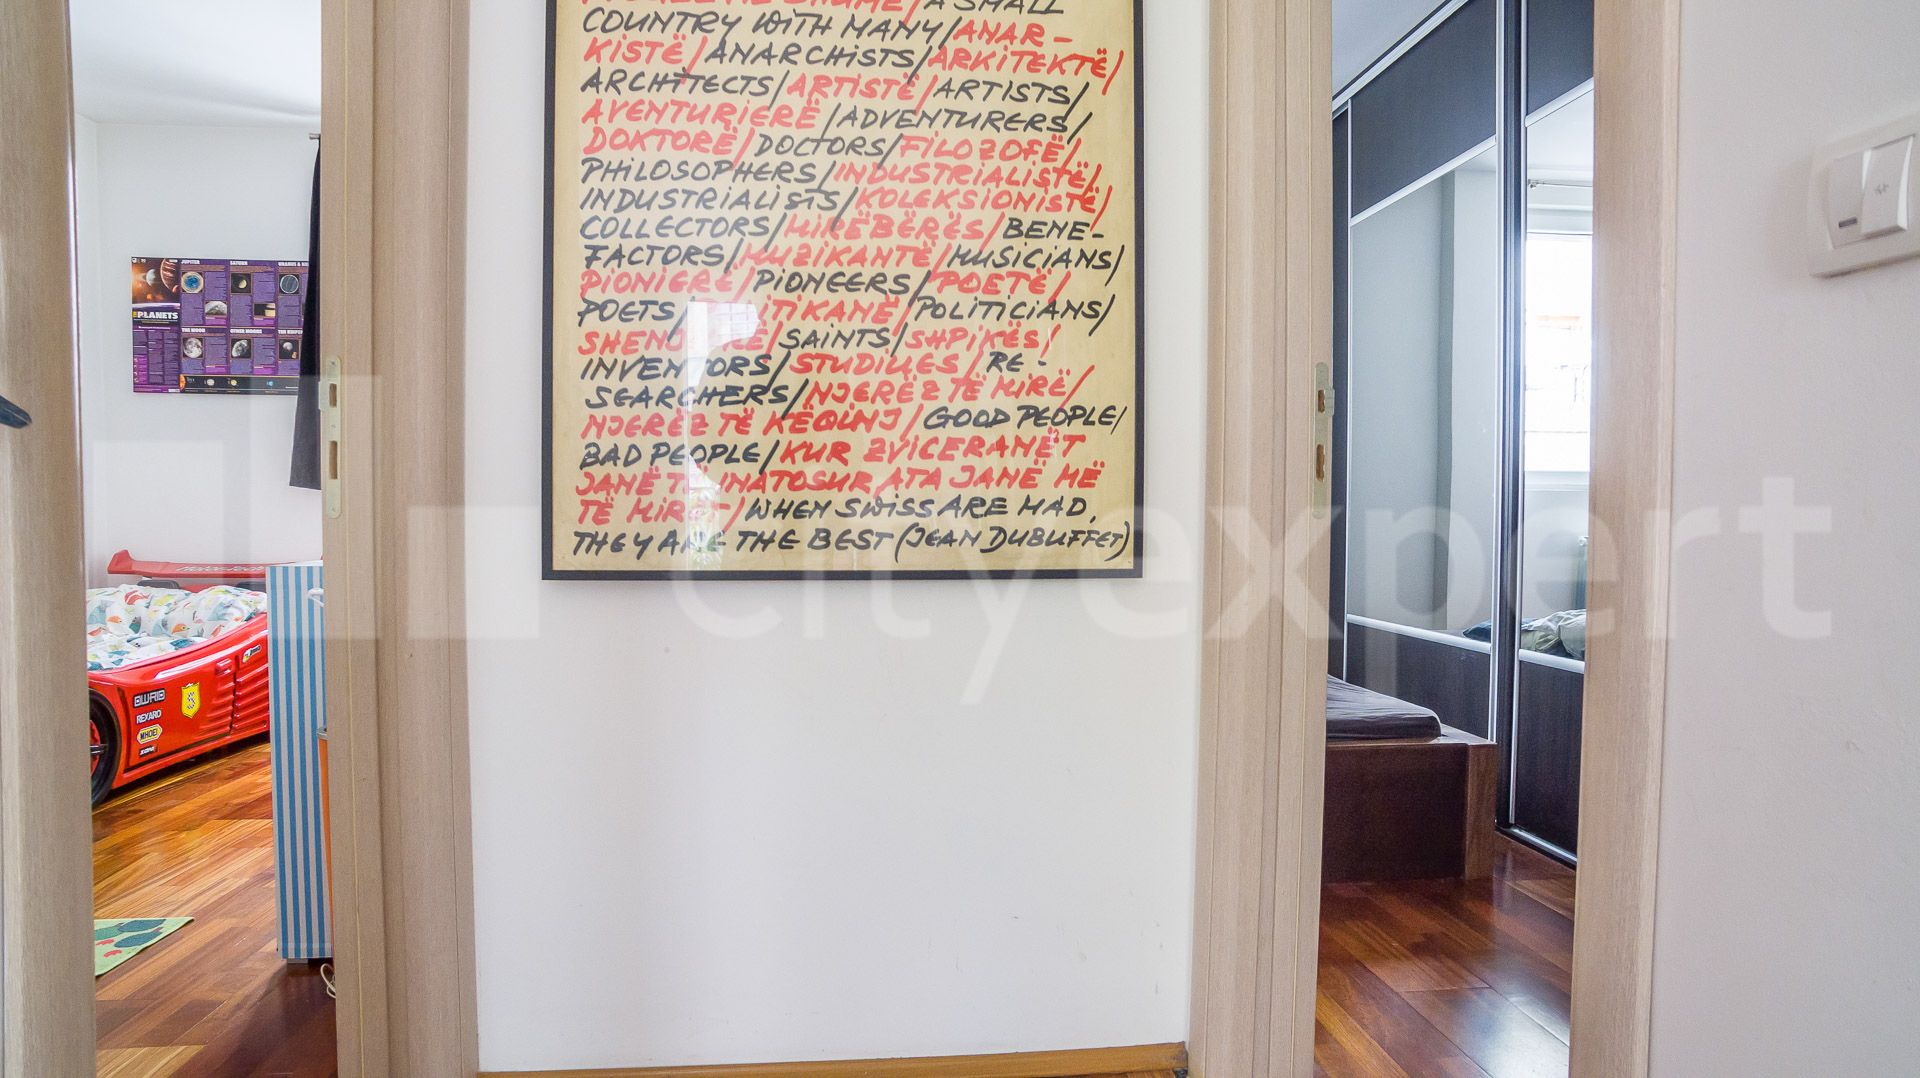 A SMALL
COUNTRY WITH MANY/ANAR-
KISTË/ANARCHISTS/ARKITEKTË/
ARCHITECTS/ARTISTË/ARTISTS/
AVENTURIERË/ADVENTURERS/
DOKTORË/DOCTORS/FILOZOFË/
PHILOSOPHERS/INDUSTRIALISTË/
INDUSTRIALISTS/KOLEKSIONISTË/
COLLECTORS/MIRËBËRËS/BENE-
FACTORS/MUZIKANTË/MUSICIANS/
PIONIERË/PIONEERS/POETË/
POETS/ TIKANË/POLITICIANS/
SHEN RË/SAINTS/SHPIKËS/
INVENTORS/STUDIUES/RE-
SEARCHERS/NJERËZ TË MIRË/
NJERËZ TË KËQINJ/GOOD PEOPLE/
BAD PEOPLE/KUR ZVICERANËT
JANË TË INATOSUR, ATA JANË MË
TË MIRËT/WHEN SWISS ARE MAD,
THEY ARE THE BEST (JEAN DUBUFFET)
JUPITER SATURN URANUS &
PLANETS
THE MOON OTHER MOONS
OWRIB
REYARO
MHOEI
cityexpert